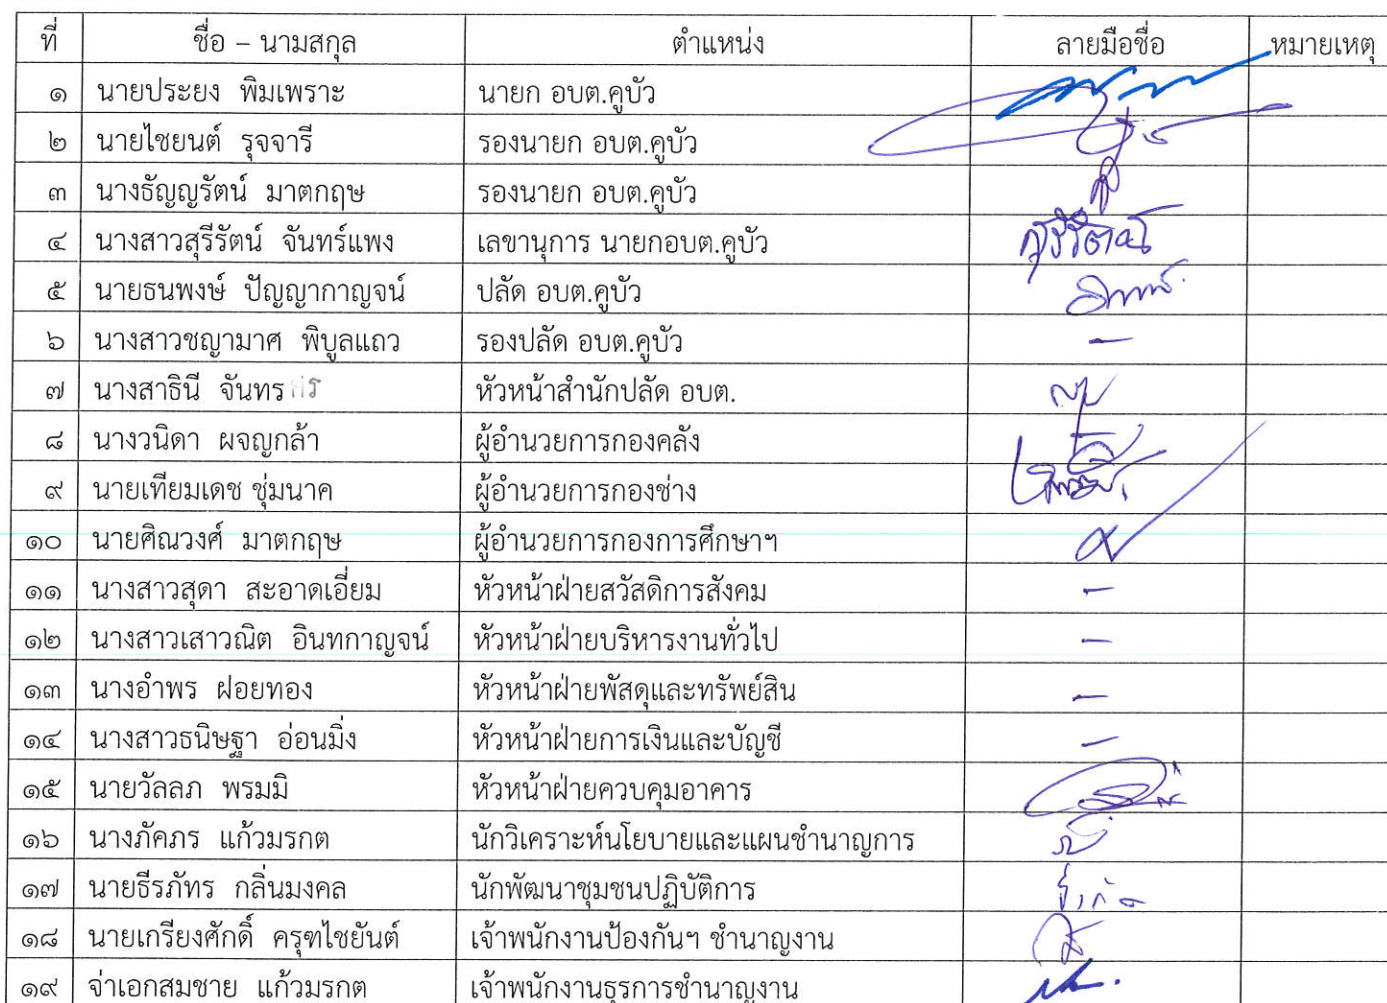 ที่ ชื่อ – นามสกุล ตำแหน่ง ลายมือชื่อ หมายเหตุ
๑ นายประยง พิมเพราะ นายก อบต.คูบัว
๒ นายไชยนต์ รุจจารี รองนายก อบต.คูบัว
๓ นางธัญญรัตน์ มาตกฤษ รองนายก อบต.คูบัว
๔ นางสาวสุรีรัตน์ จันทร์แพง เลขานุการ นายกอบต.คูบัว สุรีรัตน์
๕ นายธนพงษ์ ปัญญากาญจน์ ปลัด อบต.คูบัว
๖ นางสาวชญามาศ พิบูลแถว รองปลัด อบต.คูบัว -
๗ นางสาธินี จันทร หัวหน้าสำนักปลัด อบต.
๘ นางวนิดา ผจญกล้า ผู้อำนวยการกองคลัง
๙ นายเทียมเดช ชุ่มนาค ผู้อำนวยการกองช่าง
๑๐ นายศิณวงศ์ มาตกฤษ ผู้อำนวยการกองการศึกษาฯ
๑๑ นางสาวสุดา สะอาดเอี่ยม หัวหน้าฝ่ายสวัสดิการสังคม -
๑๒ นางสาวเสาวณิต อินทกาญจน์ หัวหน้าฝ่ายบริหารงานทั่วไป -
๑๓ นางอำพร ฝอยทอง หัวหน้าฝ่ายพัสดุและทรัพย์สิน -
๑๔ นางสาวธนิษฐา อ่อนมิ่ง หัวหน้าฝ่ายการเงินและบัญชี -
๑๕ นายวัลลภ พรมมิ หัวหน้าฝ่ายควบคุมอาคาร
๑๖ นางภัคภร แก้วมรกต นักวิเคราะห์นโยบายและแผนชำนาญการ
๑๗ นายธีรภัทร กลิ่นมงคล นักพัฒนาชุมชนปฏิบัติการ
๑๘ นายเกรียงศักดิ์ ครุฑไชยันต์ เจ้าพนักงานป้องกันฯ ชำนาญงาน
๑๙ จ่าเอกสมชาย แก้วมรกต เจ้าพนักงานธุรการชำนาญงาน